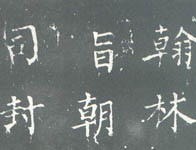 翰林
旨朝
司封